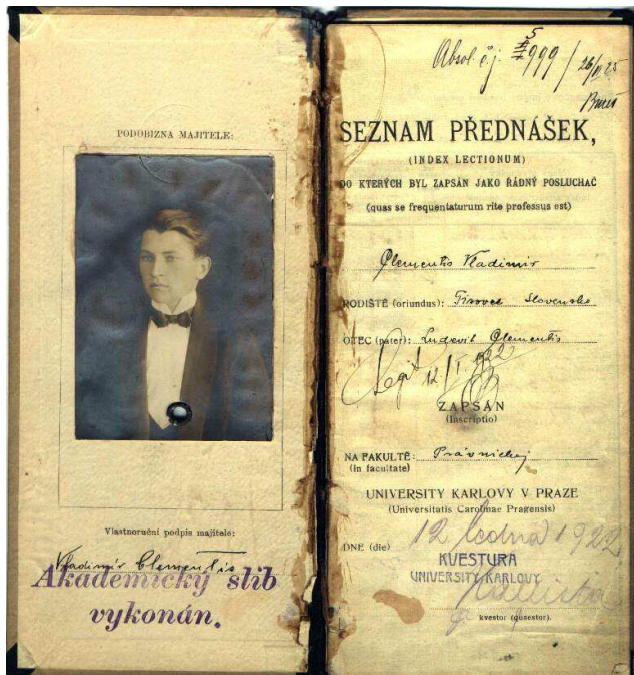 PODOBIZNA MAJITELE:
Vlastnoruční podpis majitele:
Vladimír Clementis
Akademický slib
vykonán.
Absol. č. j. 999 / 26/ 25
SEZNAM PŘEDNÁŠEK,
(INDEX LECTIONUM)
DO KTERÝCH BYL ZAPSÁN JAKO ŘÁDNÝ POSLUCHAČ
(quas se frequentaturum rite professus est)
Clementis Vladimír
RODIŠTĚ (oriundus): Tisovec Slovensko
OTEC (pater): Ludovit Clementis
Legit 12/I. 1922
ZAPSÁN
(Inscriptio)
NA FAKULTĚ: Právnickej
(in facultate)
UNIVERSITY KARLOVY V PRAZE
(Universitatis Carolinae Pragensis)
DNE (die) 12 ledna 1922
KVESTURA
UNIVERSITY KARLOVY
kvestor (quaestor).